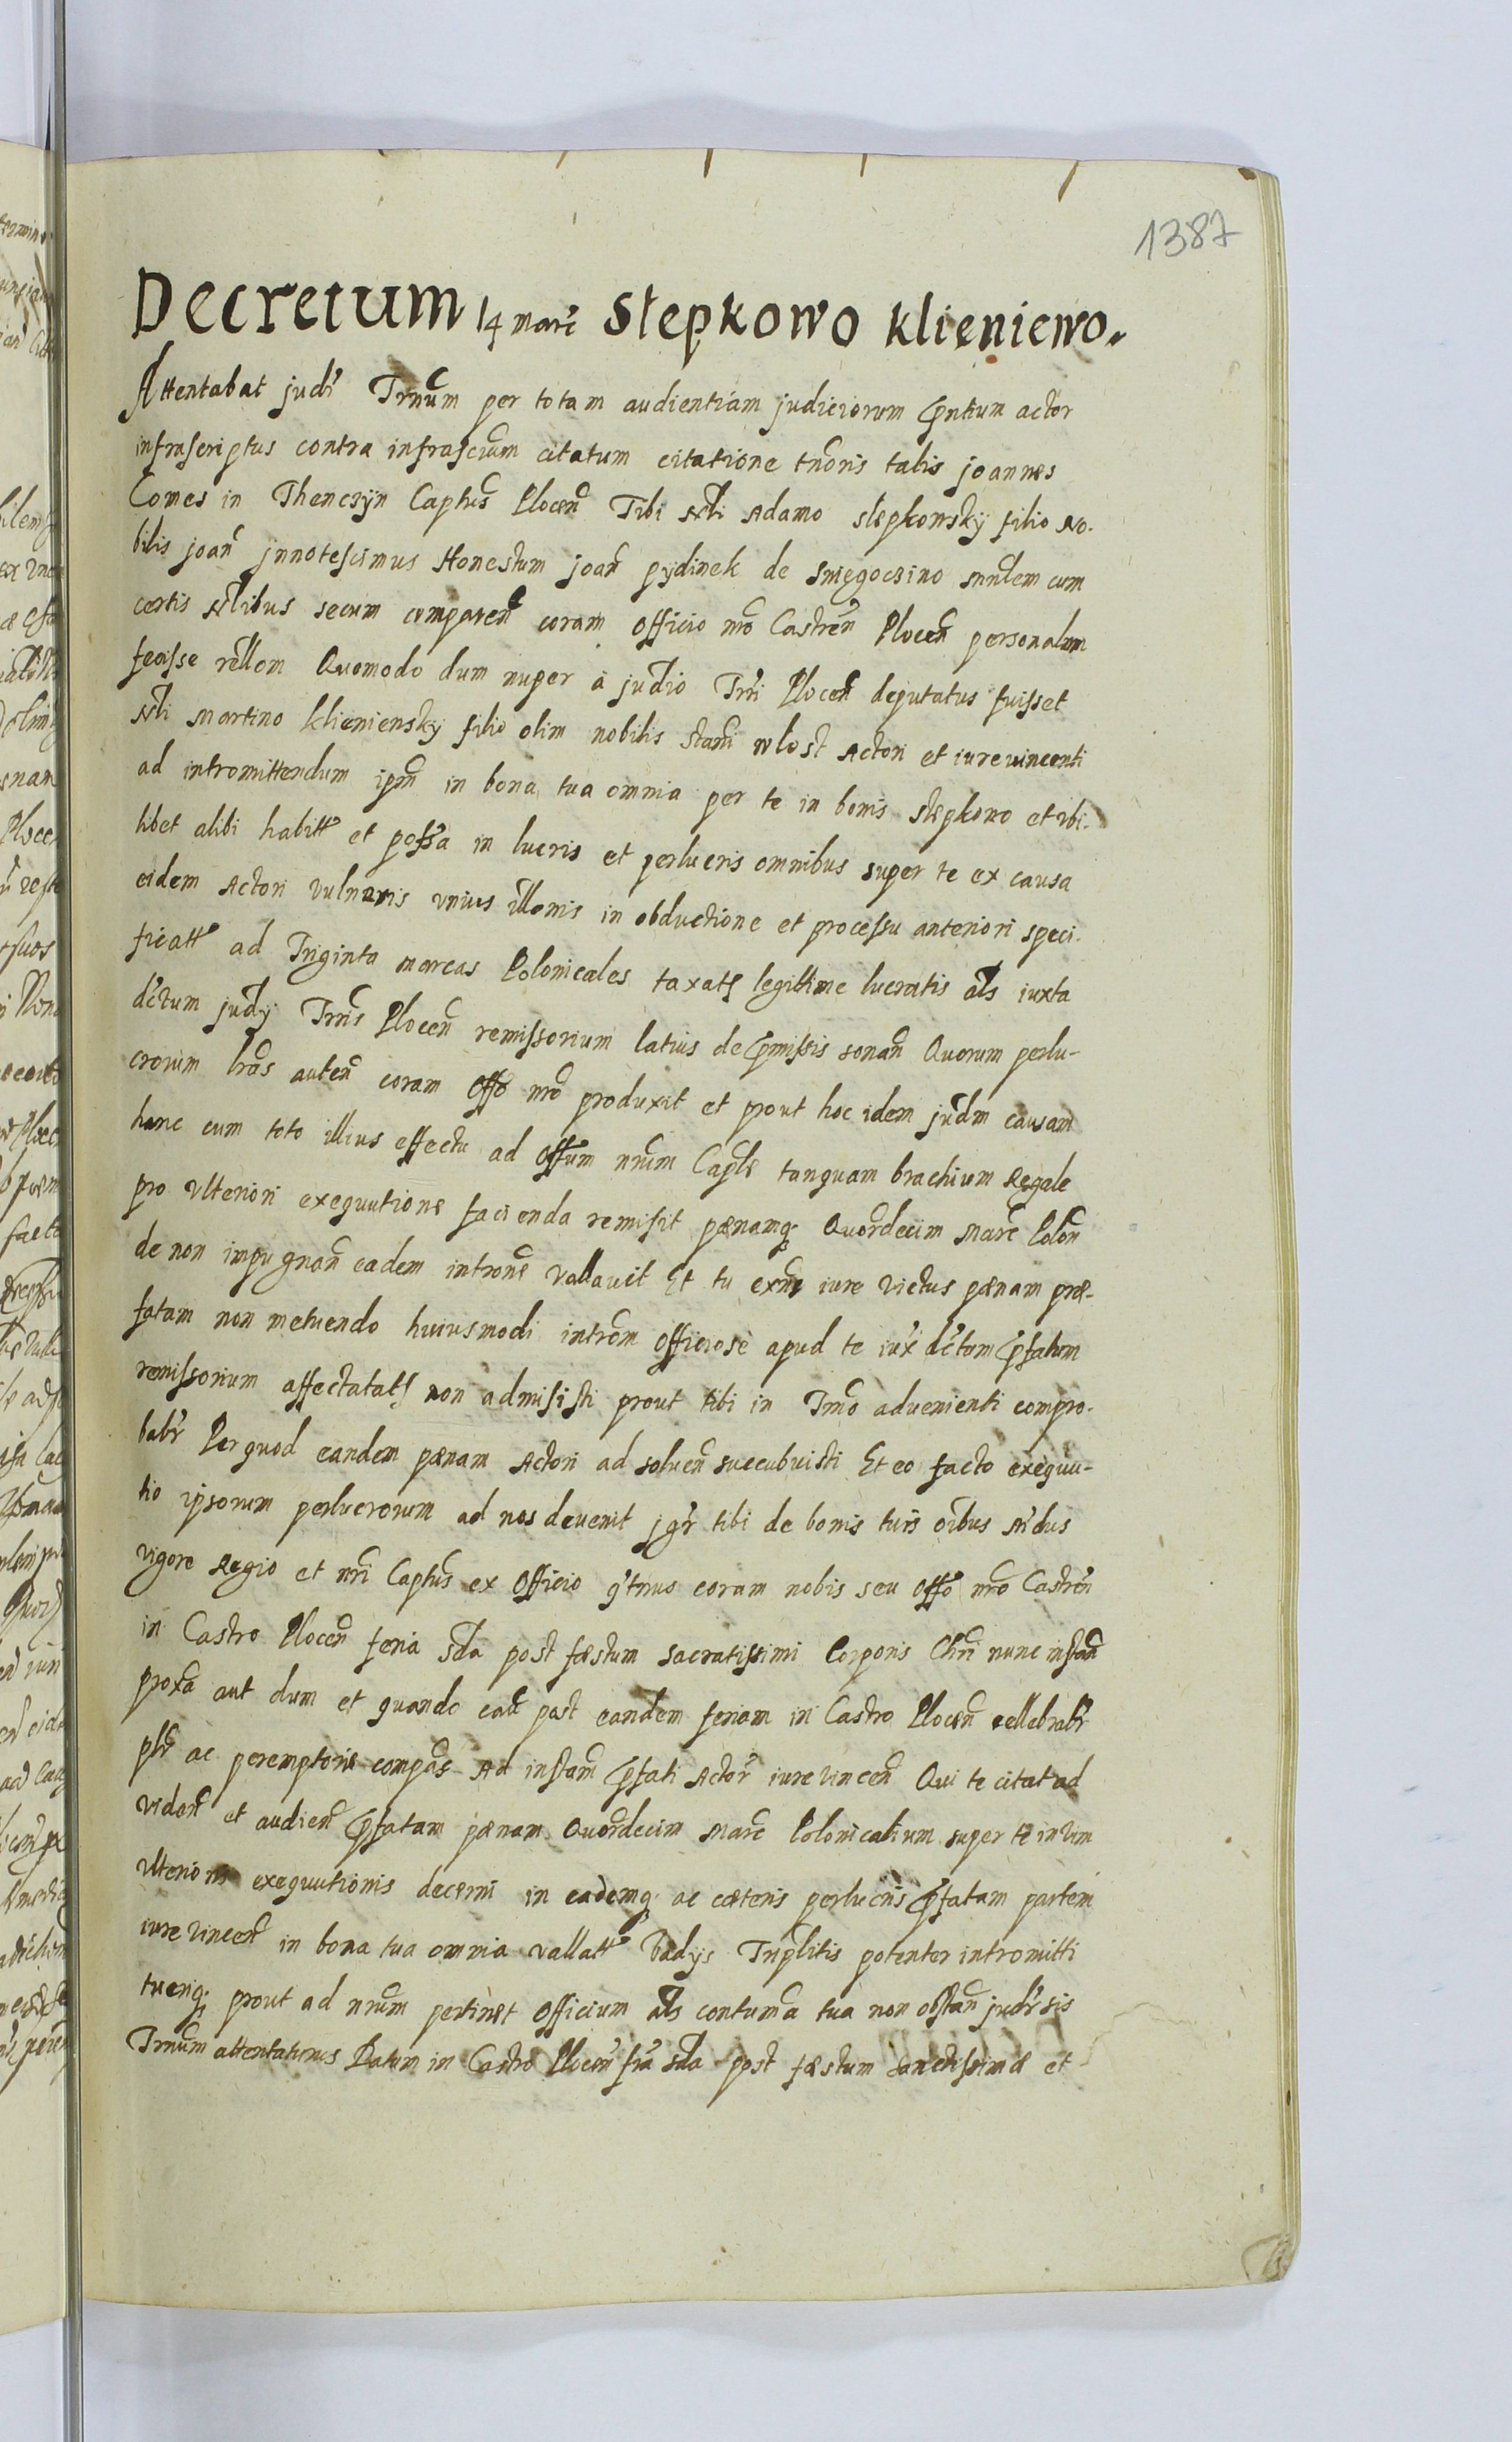 1387
Decretum 14 marc Slepkowo Klieniewo.
Attentabat judr Trnum per totam audientiam judiciorum pntium actor
infrascriptus contra infrascrum citatum citatione tnoris talis joannes
Comes in Thenczyn Captus Plocen Tibi Nli Adamo slepkowsky filio No-
bilis joan jnnotescimus Honestum joan pydinek de Smęgoczino mnlem cum
certis Nlibus secum comparen coram officio nro Castren Plocen personalem
fecisse rellom Quomodo dum nuper a judio Trri Plocen deputatus fuisset
Nli Martino Klieniensky filio olim nobilis Stani wlost Actori et iurevincenti
ad intromittendum ipm in bona tua omnia per te in bonis slepkowo et vbi-
libet alibi habitt et possa in lucris et perlucris omnibus super te ex causa
eidem Actori vulneris vnius illonis in obductione et processu anteriori speci-
ficatt ad Triginta marcas Polonicales taxatt legittime lucratis als iuxta
dctum judy Trris Plocen remissorium latius de pmissis sonan Quorum perlu-
crorum lras auten coram offo nro produxit et prout hoc idem judm causam
hanc cum toto illius effectu ad offum nrum Caple tanquam brachium Regale
pro vlteriori exequutione facienda remisit pænamq; Quordecim Marc Polon
de non impugnan eadem introne vallavit Et tu exns iure victus pænam præ-
fatam non metuendo huiusmodi introm officiose apud te iux dctum pfatum
remissorium affectatatt non admisisti prout tibi in Trmo aduenienti compro-
babr Per quod eandem pænam Actori ad soluen succubuisti Et eo facto exequu-
tio ipsorum perlucrorum ad nos devenit jgr tibi de bonis tuis oibus Mdus
vigore Regio et nri Captus ex officio qtnus coram nobis seu offo nro Castren
in Castro Plocen feria sda post fæstum sacratissimi Corporis Chri nunc instan
proxa aut dum et quando caē post eandem feriam in Castro Plocen cellebrabr
plr ac peremptorie compas Ad instam pfati Actor iurevincen Qui te citat ad
viden et audien pfatam pænam Quordecim Marc Polonicalium super te in vim
vlterioris exequutionis decerni in eademq; ac cæteris perlucris pfatam partem
iurevincen in bona tua omnia vallatt Vadys Triplitis potenter intromitti
tueriq; prout ad nrum pertinet officium als contuma tua non obstan judr sis
Trnum attentaturus Datum in Castro Plocen fra sda post fæstum sanctissimæ et